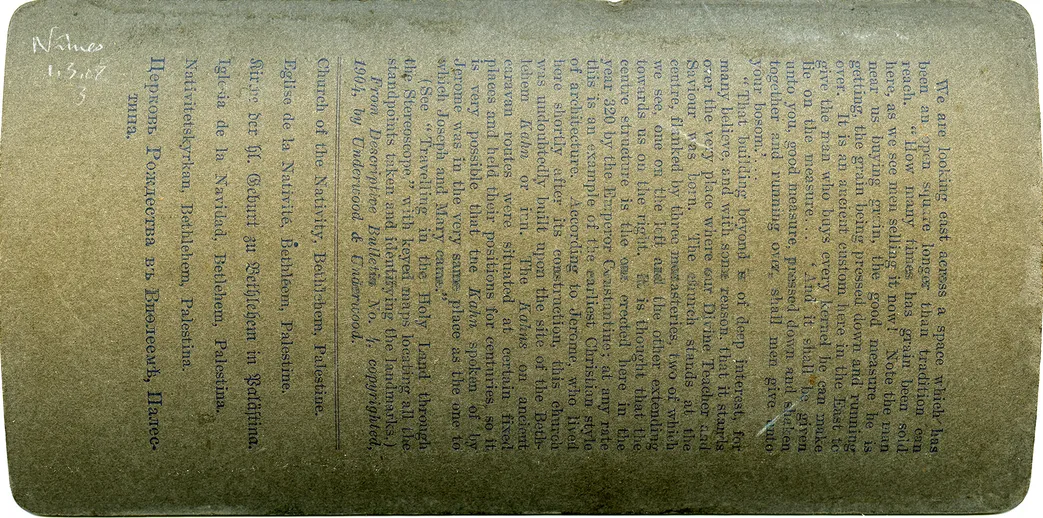 We are looking east across a space which has
been an open square longer than tradition can
reach. "How many times has grain been sold
here, as we see men selling it now! Note the man
near us buying grain, the good measure he is
getting, the grain being pressed down and running
over. It is an ancient custom here in the East to
give the man who buys every kernel he can make
lie on the measure.... 'And it shall be given
unto you, good measure, pressed down and shaken
together and running over, shall men give into
your bosom.'...
"That building beyond is of deep interest, for
many believe, and with some reason, that it stands
over the very place where our Divine Teacher and
Saviour was born. The church stands at the
centre, flanked by three monasteries, two of which
we see, one on the left and the other extending
towards us on the right. It is thought that the
centre structure is the one erected here in the
year 320 by the Emperor Constantine; at any rate
this is an example of the earliest Christian style
of architecture. According to Jerome who lived
here shortly after its construction, this church
was undoubtedly built upon the site of the Beth-
lehem Kahn or inn. The Kahns on ancient
caravan routes were situated at certain fixed
places and held their positions for centuries, so it
is very possible that the Kahn spoken of by
Jerome was in the very same place as the one to
which Joseph and Mary came."
(See "Travelling in the Holy Land through
the Stereoscope," with keyed maps locating all the
standpoints taken and identifying the landmarks.)
From Descriptive Bulletin No. 4, copyrighted,
1904, by Underwood & Underwood.
Church of the Nativity, Bethlehem, Palestine.
Eglise de la Nativité, Bethléem, Palestine.
Kirche der hl. Geburt zu Bethlehem in Palästina.
Iglesia de la Navidad, Betlehem, Palestina.
Nativitetskyrkan, Bethlehem, Palestina.
Церковь Рождества въ Виѳлеемѣ, Палес-
тина.
Nîmes
1.3.08
3